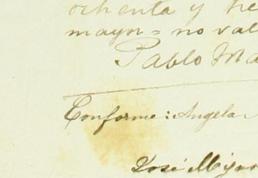 ochenta y
mayn= no val
Pablo Ma
Conforme: Angela
José